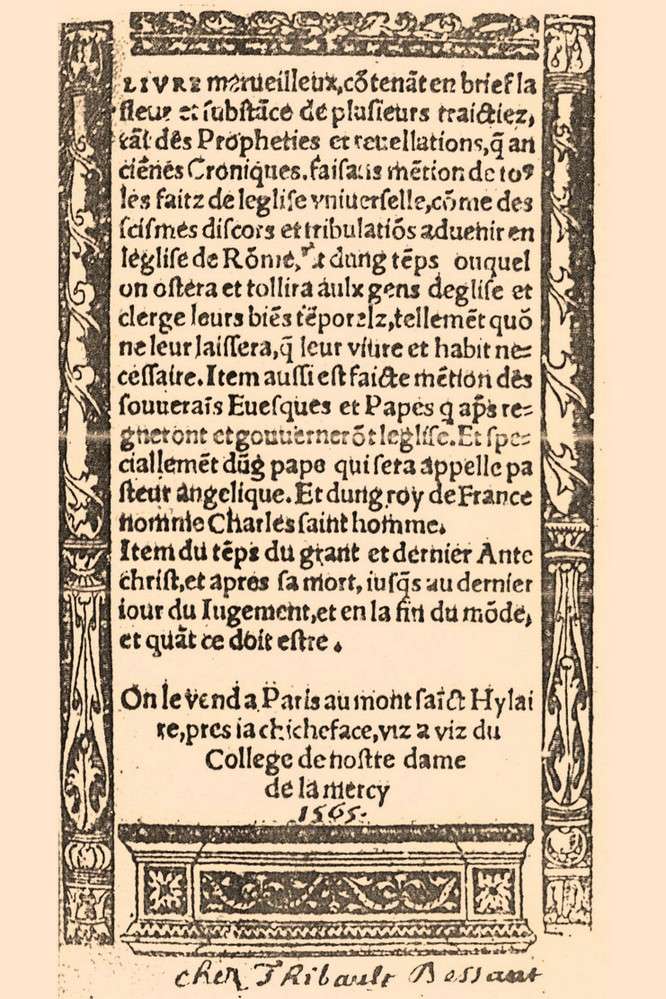 LIVRE merueilleux, cõtenãt en brief la
fleur et substãce de plusieurs traictiez,
tãt des Propheties et reuellations, q̃ an
ciẽnes Croniques. faisãs mẽtion de toꝰ
les faitz de leglise vniuerselle, cõme des
scismes discors et tribulatiõs aduenir en
leglise de Rõme, Et dung tẽps ouquel
on ostera et tollira aulx gens deglise et
clerge leurs biẽs tẽporelz, tellemẽt quõ
ne leur laissera, q̃ leur viure et habit ne=
cessaire. Item aussi est faicte mẽtion des
souueraĩs Euesques et Papes q ap̃s re=
gneront et gouuernerõt leglise. Et spe=
ciallemẽt dũg pape qui sera appelle pa
steur angelique. Et dung roy de France
nomme Charles saint homme.
Item du tẽps du grant et dernier Ante
christ, et apres sa mort, iusq̃s au dernier
iour du Iugement, et en la fin du mõde,
et quãt ce doit estre.
On le vend a Paris au mont saĩct Hylai
re, pres la chicheface, viz a viz du
College de nostre dame
de la mercy
1565.
chez Thibault Bessaut